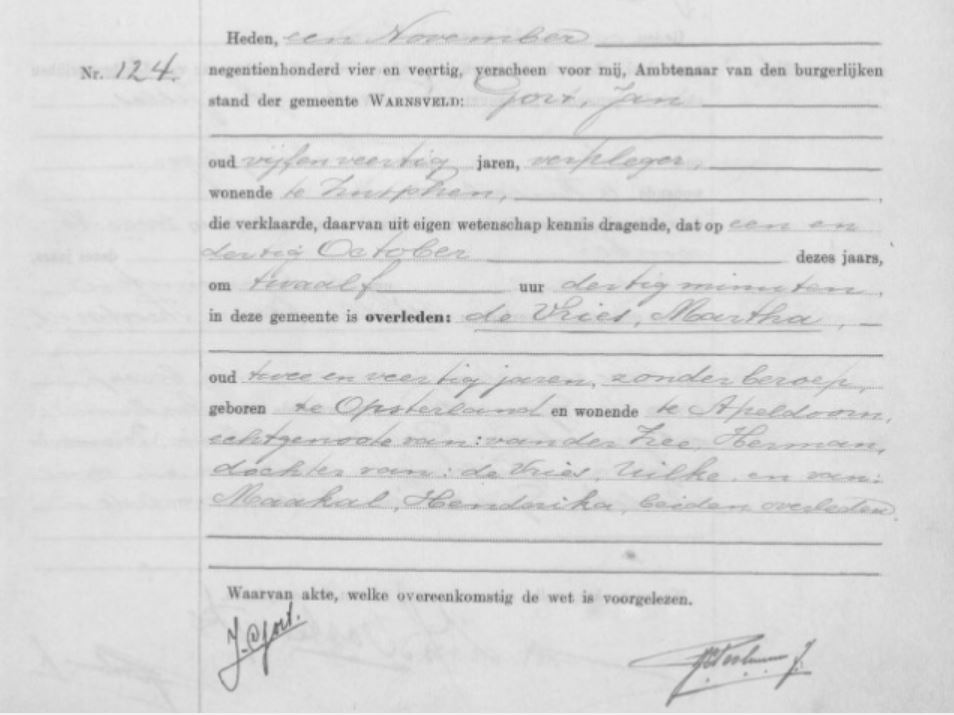 Heden, een November
Nr. 124 negentienhonderd vier en veertig, verscheen voor mij, Ambtenaar van den burgerlijken
stand der gemeente WARNSVELD: Gort, Jan
oud vijfenveertig jaren, verpleger,
wonende te Zutphen,
die verklaarde, daarvan uit eigen wetenschap kennis dragende, dat op een en
dertig October dezes jaars,
om twaalf uur dertig minuten,
in deze gemeente is overleden: de Vries, Martha,
oud twee en veertig jaren, zonder beroep,
geboren te Opsterland en wonende te Apeldoorn,
echtgenoote van: van der Zee, Herman,
dochter van: de Vries, Uilke en van:
Maakal, Hendrika, beiden overleden
Waarvan akte, welke overeenkomstig de wet is voorgelezen.
J. Gort.